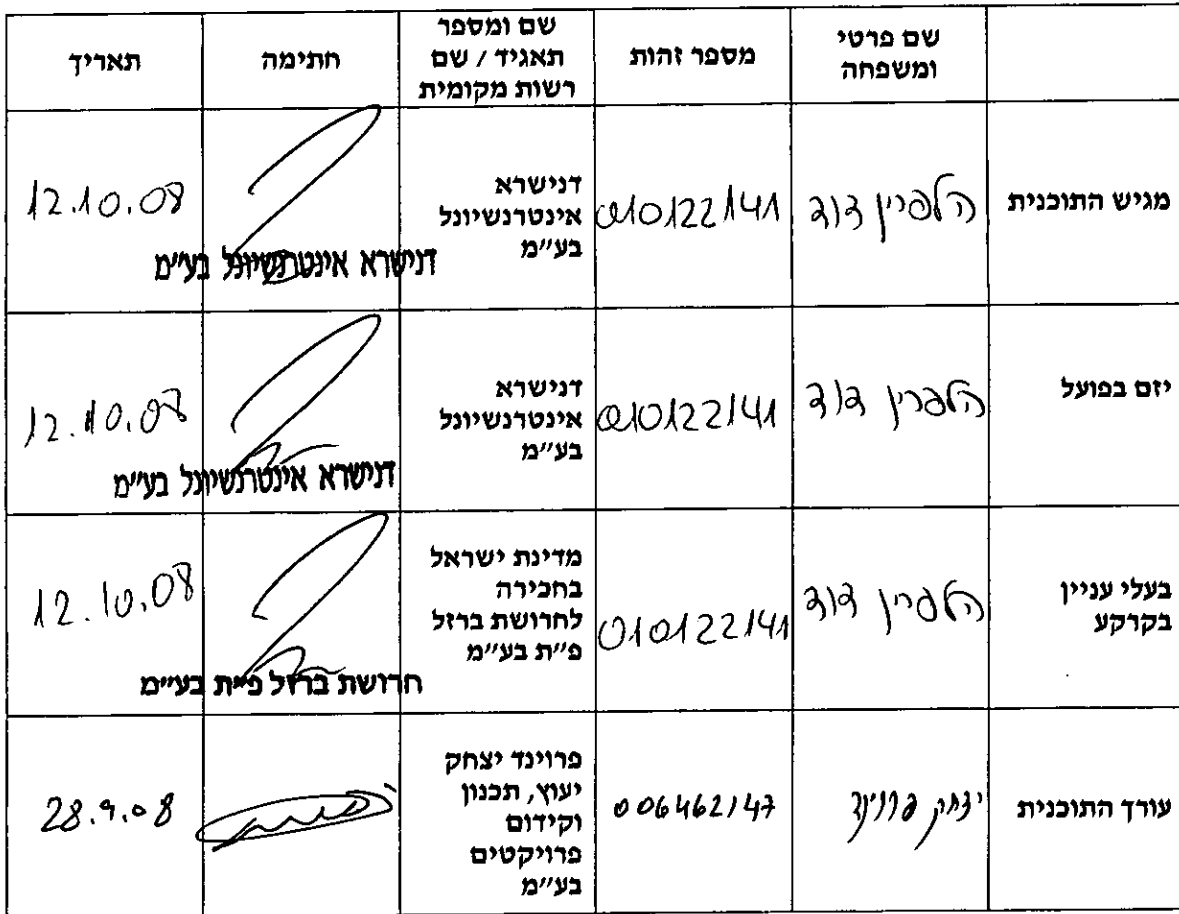 שם פרטי ומשפחה
מספר זהות
שם ומספר תאגיד / שם רשות מקומית
חתימה
תאריך
מגיש התוכנית
הלפרין דוד
010122141
דנישרא אינטרנשיונל בע״מ
דנישרא אינטרנשיונל בע״מ
12.10.08
יזם בפועל
הלפרין דוד
010122141
דנישרא אינטרנשיונל בע״מ
דנישרא אינטרנשיונל בע״מ
12.10.08
בעלי עניין בקרקע
הלפרין דוד
010122141
מדינת ישראל בחכירה לחרושת ברזל פ״ת בע״מ
חרושת ברזל פ״ת בע״מ
12.10.08
עורך התוכנית
יצחק פרוינד
006462147
פרוינד יצחק יעוץ, תכנון וקידום פרויקטים בע״מ
28.9.08